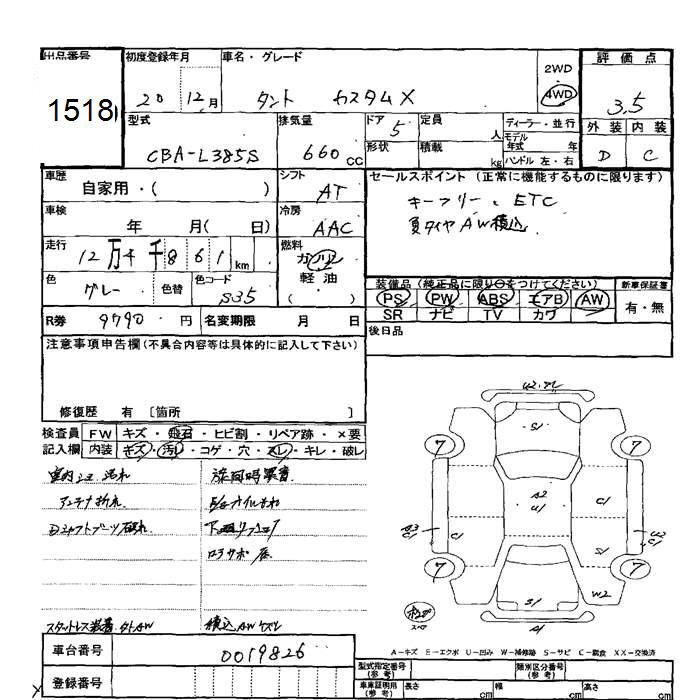 出品番号 初度登録年月 車名・グレード 2WD 評価点
1518 20 12月 タント カスタムX 4WD 3.5
型式 排気量 ドア 定員 ディーラー・並行 外装 内装
CBA-L385S 660cc 5 人 モデル年式 年 D C
形状 積載 kg ハンドル 左・右
車歴 シフト セールスポイント(正常に機能するものに限ります)
自家用・( ) AT キーフリー、ETC
車検 冷房 夏タイヤAW積込
年 月( 日) AAC
走行 燃料
12万4千861km ガソリン
色 色替 色コード 軽油 装備品(純正品に限り○をつけてください) 新車保証書
グレー S35 ( ) PS PW ABS エアB AW 有・無
R券 9790円 名変期限 月 日 SR ナビ TV カワ
注意事項申告欄(不具合内容等は具体的に記入して下さい) 後日品
修復歴 有 [箇所 ]
検査員 FW キズ・飛石・ヒビ割・リペア跡・×要
記入欄 内装 キズ・汚レ・コゲ・穴・スレ・キレ・破レ
アンテナ折れ
Dシャフトブーツ破れ
ロアサポ
スタットレス装着 積込AW
車台番号 0019826
登録番号
U2 A1
S1
7 7
A2
U1
C1
A3
C1
C1
U2
C1
S1
7 7
W2
S1
A1
A-キズ E-エクボ U-凹み W-補修跡 S-サビ C-腐食 XX-交換済
型式指定番号(参考) 類別区分番号(参考)
車庫証明用(参考) 長さ cm 幅 cm 高さ cm